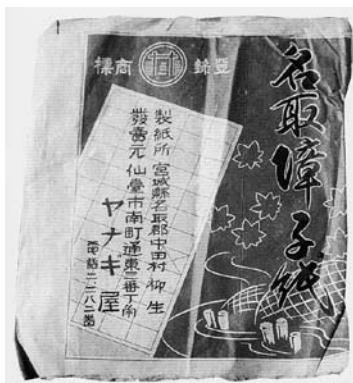 登錄商標
名取障子紙
製紙所 宮城縣名取郡中田村柳生
發賣元 仙臺市南町通東二番丁角
ヤナギ屋
電話二二八二番